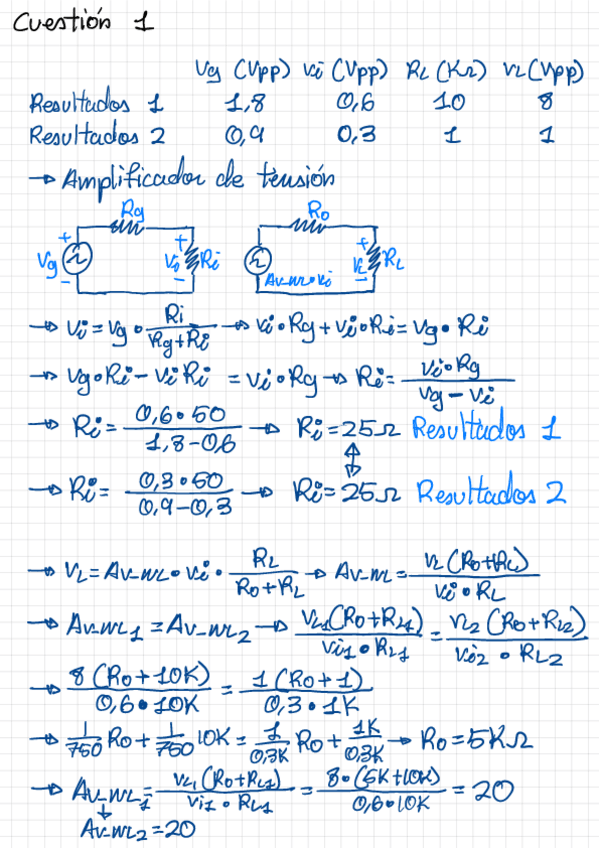 Cuestión 1
Vg (Vpp) vi (Vpp) RL (KΩ) vL (Vpp)
Resultados 1 1,8 0,6 10 8
Resultados 2 0,9 0,3 1 1
→ Amplificador de tensión
Rg Ro
+ Vg - + Vi - Ri Av-NL•vi + VL - RL
→ Vi = Vg • Ri/(Rg+Ri) → Vi • Rg + Vi • Ri = Vg • Ri
→ Vg • Ri - Vi Ri = Vi • Rg → Ri = (Vi • Rg)/(Vg - Vi)
→ Ri = (0,6 • 50)/(1,8-0,6) → Ri = 25Ω Resultados 1
↕
→ Ri = (0,3 • 50)/(0,9-0,3) → Ri = 25Ω Resultados 2
→ VL = Av-NL • vi • RL/(Ro+RL) → Av-NL = VL (Ro+RL)/(vi • RL)
→ Av-NL1 = Av-NL2 → VL1 (Ro+RL1)/(vi1 • RL1) = VL2 (Ro+RL2)/(vi2 • RL2)
→ 8 (Ro+10K)/(0,6 • 10K) = 1 (Ro+1)/(0,3 • 1K)
→ 1/750 Ro + 1/750 10K = 1/0,3K Ro + 1K/0,3K → Ro = 5KΩ
→ Av-NL1 = VL1 (Ro+RL1)/(vi1 • RL1) = 8 • (5K+10K)/(0,6 • 10K) = 20
↓
Av-NL2 = 20